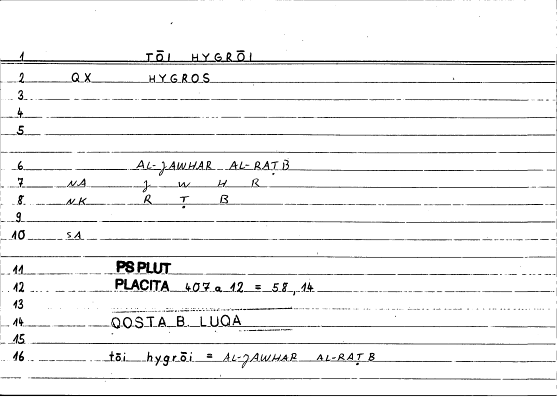 1 TŌI HYGRŌI
2 QX HYGROS
3
4
5
6 AL-JAWHAR AL-RAṬB
7 NA J W H R
8 NK R Ṭ B
9
10 SA
11 PSPLUT
12 PLACITA 407a 12 = 58,14
13
14 QOSTA B. LUQA
15
16 tōi hygrōi = AL-JAWHAR AL-RAṬB